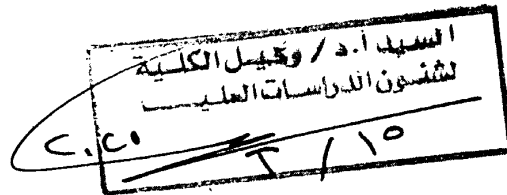 السيد أ.د / وكيل الكلية
لشئون الدراسات العليا
١٥ / ٢